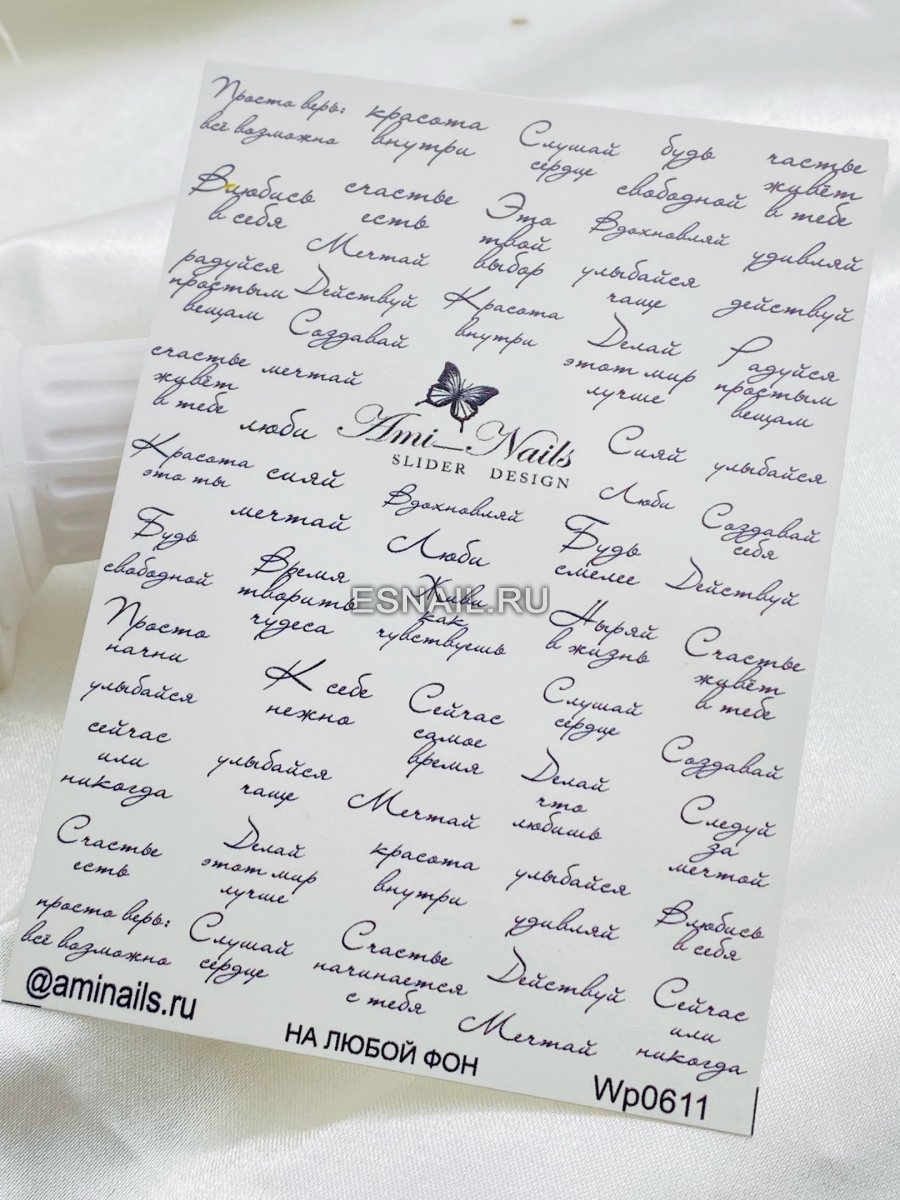 Просто верь:
всё возможно
красота
внутри
Слушай
сердце
будь
свободной
счастье
живёт
в тебе
Влюбись
в себя
счастье
есть
Это
твой
выбор
Вдохновляй
удивляй
Мечтай
улыбайся
чаще
действуй
радуйся
простым
вещам
Действуй
Красота
внутри
Делай
этот мир
лучше
Радуйся
простым
вещам
Создавай
счастье
живёт
в тебе
мечтай
люби
Ami_Nails
SLIDER DESIGN
Сияй
улыбайся
Красота
это ты
сияй
Вдохновляй
Люби
Создавай
себя
мечтай
Будь
свободной
Время
творить
чудеса
Люби
Будь
смелее
Действуй
ESNAIL.RU
Живи
как
чувствуешь
Ныряй
в жизнь
Счастье
живёт
в тебе
Просто
начни
улыбайся
К себе
нежно
Сейчас
самое
время
Слушай
сердце
Создавай
сейчас
или
никогда
улыбайся
чаще
Мечтай
Делай
что
любишь
Следуй
за
мечтой
Счастье
есть
Делай
этот мир
лучше
красота
внутри
улыбайся
удивляй
Влюбись
в себя
просто верь:
всё возможно
Слушай
сердце
Счастье
начинается
с тебя
Действуй
Мечтай
Сейчас
или
никогда
@aminails.ru
НА ЛЮБОЙ ФОН
Wp0611